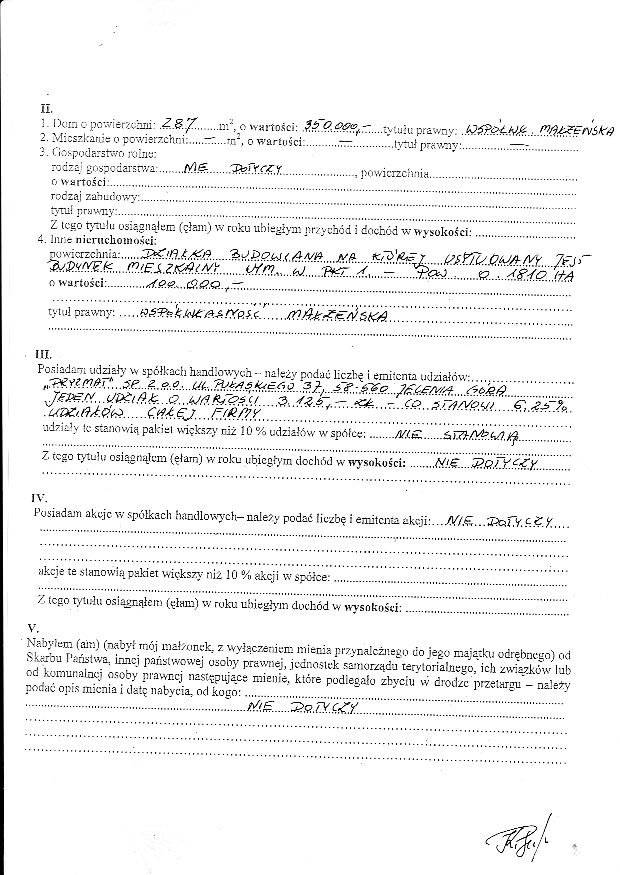 II.
1. Dom o powierzchni: 287 m², o wartości: 350.000,- tytułu prawny: WSPÓŁWŁ. MAŁŻEŃSKA
2. Mieszkanie o powierzchni: — m², o wartości: — tytuł prawny: —
3. Gospodarstwo rolne:
rodzaj gospodarstwa: NIE DOTYCZY, powierzchnia
o wartości:
rodzaj zabudowy:
tytuł prawny:
Z tego tytułu osiągnąłem (ęłam) w roku ubiegłym przychód i dochód w wysokości:
4. Inne nieruchomości:
powierzchnia: DZIAŁKA BUDOWLANA NA KTÓREJ USYTUOWANY JEST
BUDYNEK MIESZKALNY WYM. W PKT 1. – POW 0.1810 HA
o wartości: 100.000,-
tytuł prawny: WSPÓŁWŁASNOŚĆ MAŁŻEŃSKA
III.
Posiadam udziały w spółkach handlowych – należy podać liczbę i emitenta udziałów:
„PRYZMAT" SP. Z O.O. UL. PUŁASKIEGO 37, 58-560 JELENIA GÓRA
JEDEN UDZIAŁ O WARTOŚCI 3.125,- ZŁ - CO STANOWI 6,25%
UDZIAŁÓW CAŁEJ FIRMY
udziały te stanowią pakiet większy niż 10 % udziałów w spółce: NIE STANOWIĄ
Z tego tytułu osiągnąłem (ęłam) w roku ubiegłym dochód w wysokości: NIE DOTYCZY
IV.
Posiadam akcje w spółkach handlowych– należy podać liczbę i emitenta akcji: NIE DOTYCZY
akcje te stanowią pakiet większy niż 10 % akcji w spółce:
Z tego tytułu osiągnąłem (ęłam) w roku ubiegłym dochód w wysokości:
V.
Nabyłem (am) (nabył mój małżonek, z wyłączeniem mienia przynależnego do jego majątku odrębnego) od
Skarbu Państwa, innej państwowej osoby prawnej, jednostek samorządu terytorialnego, ich związków lub
od komunalnej osoby prawnej następujące mienie, które podlegało zbyciu w drodze przetargu – należy
podać opis mienia i datę nabycia, od kogo:
NIE DOTYCZY